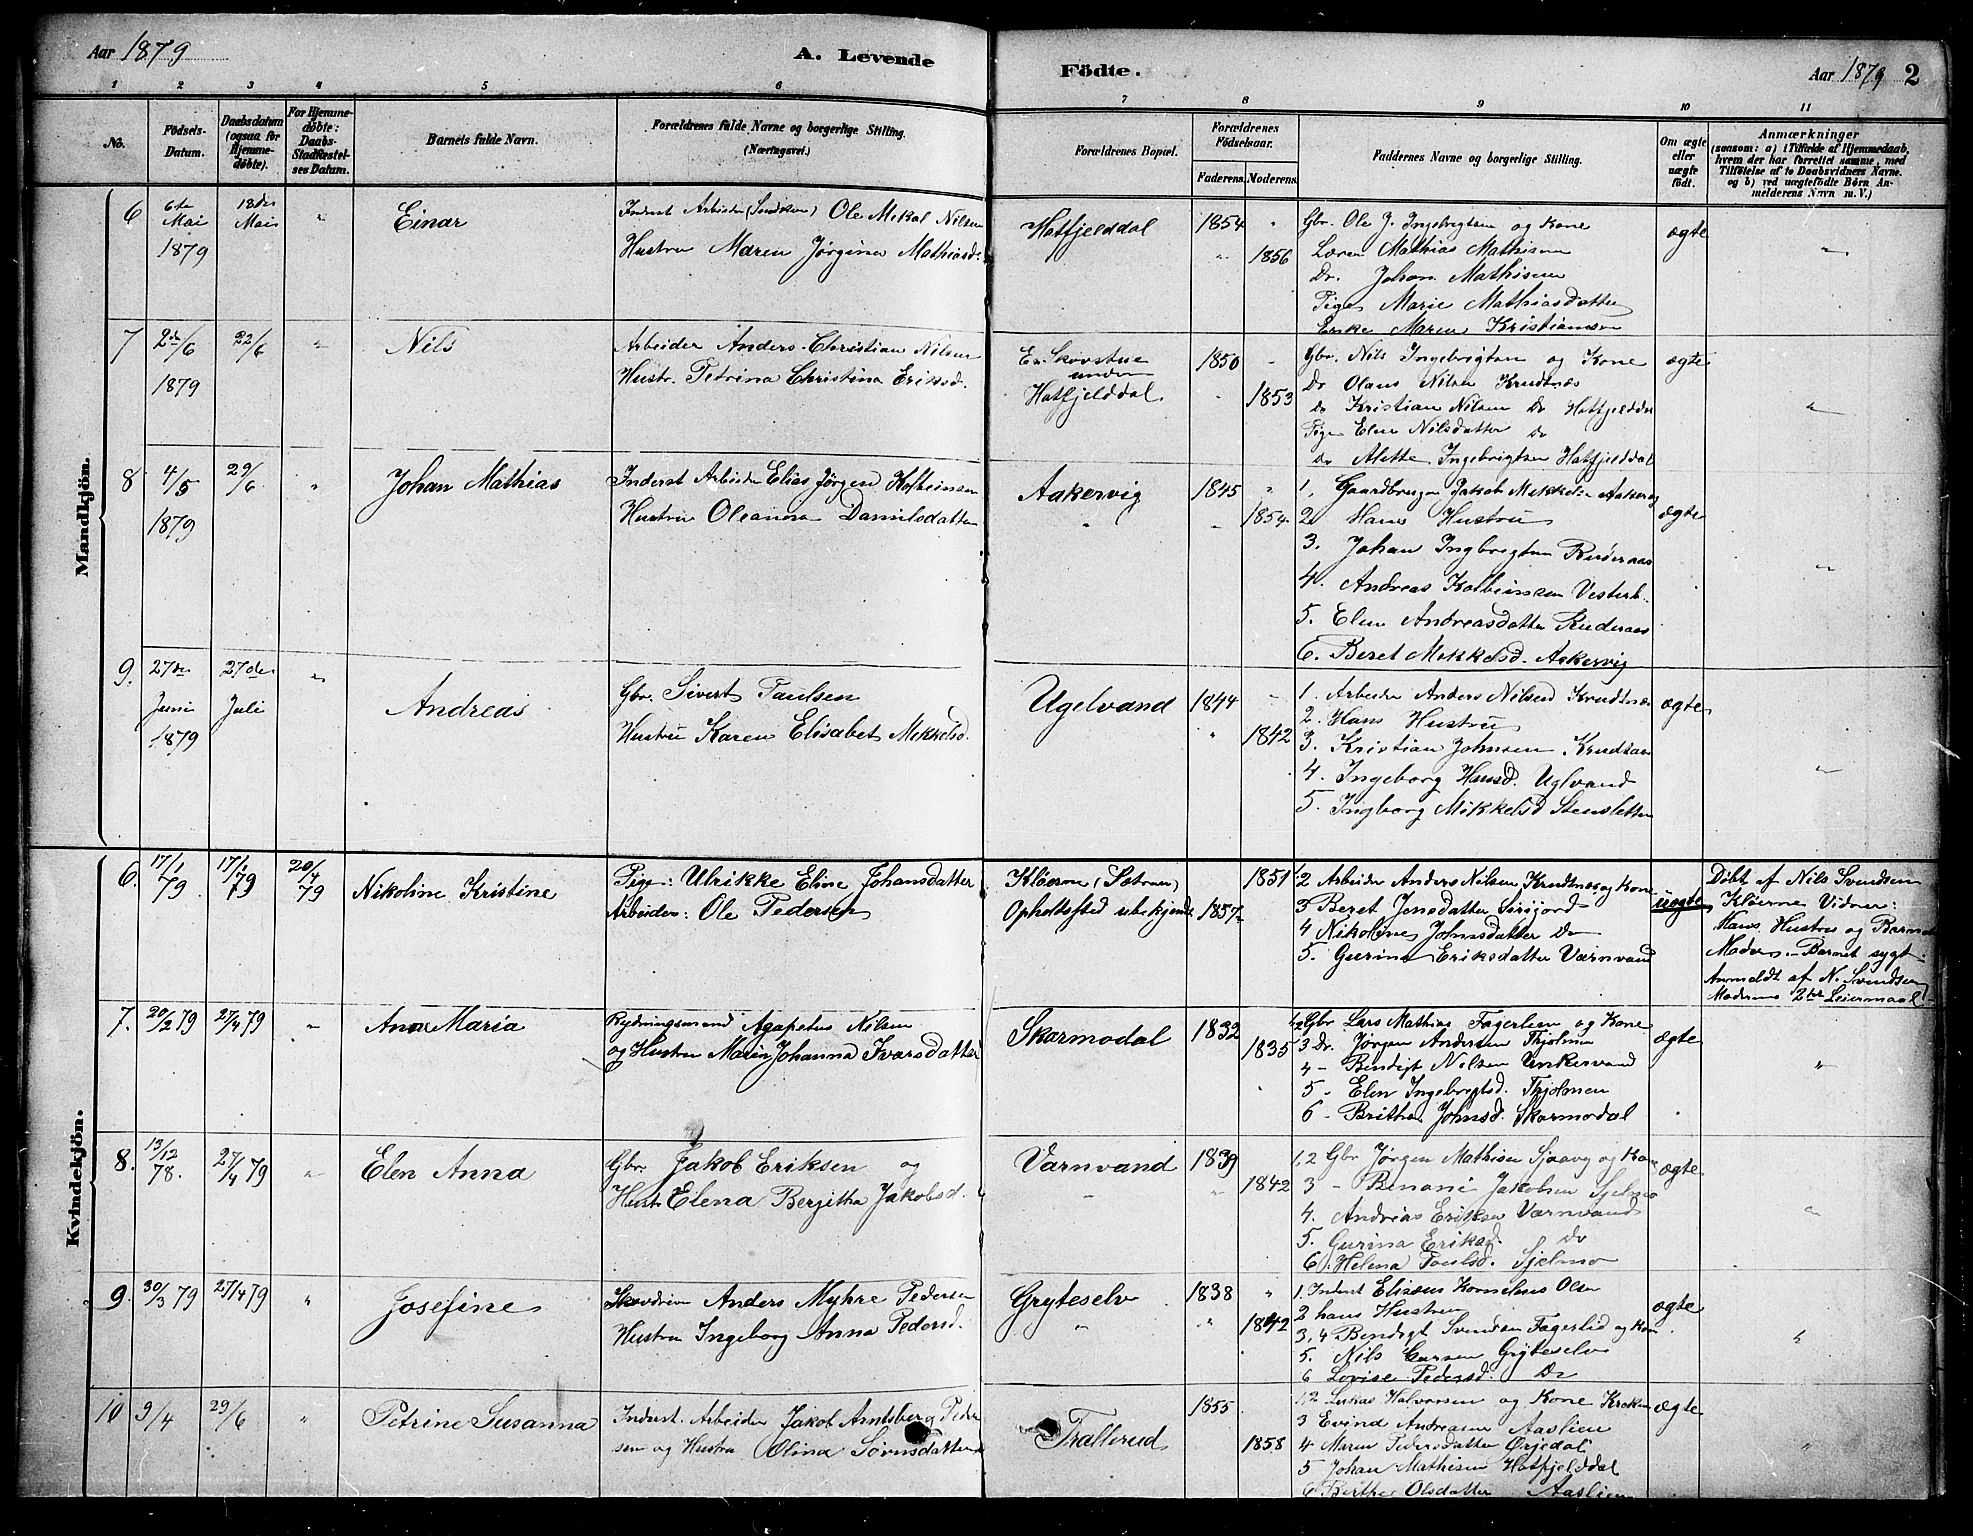 Aar 1879
A. Levende
Födte.
Aar 1879 2
1 2 3 4 5 6 7 8 9 10 11
No.
Födsels-
Datum.
Daabsdatum
(ogsaa for
Hjemme-
døbte).
For Hjemme-
døbte:
Daabs-
Stadfæstel-
ses Datum.
Barnets fulde Navn.
Forældrenes fulde Navne og borgerlige Stilling.
(Næringsvei.)
Forældrenes Bopæl.
Forældrenes
Fødselsaar.
Faderens. Moderens.
Faddernes Navne og borgerlige Stilling.
Om ægte
eller
uægte
født.
Anmærkninger
(saasom: a) i Tilfælde af Hjemmedaab,
hvem der har forrettet samme, med
Tilføielse af to Daabsvidners Navne.
og b) ved uægtefødte Børn An-
melderens Navn m. V.)
Mandkjön.
6 6te Mai 1879 18de Mai " Einar
Inderst Arbeider Ole Mekal Nilsen
Hustru Maren Jørgine Mathiasd.
Hatfjelddal 1854 "
" 1856
Gbr. Ole J. Ingebrigtsen og Kone
Mathias Mathisen
Do. Johan Mathisen
Pige Marie Mathiasdatter
Enke Maren Kristiansen
ægte "
7 2den/6 1879 22/6 " Nils
Arbeider Anders Christian Nilsen
Hustr. Petrina Christina Eriksd.
Skovstue
under
Hatfjelddal
1850 "
" 1853
Gbr. Nils Ingebrigtsen og Kone
Do Olaus Nilsen Krudtnæs
do Kristian Nilsen Do Hatfjelddal
Pige Elen Nilsdatter Do
do Alette Ingebrigtsen Hatfjelddal
ægte "
8 4/5 1879 29/6 " Johan Mathias
Inderst Arbeider Elias Jørgen Kolbeinsen
Hustru Oleanna Danielsdatter
Aakervig 1845 "
" " 1854
1. Gaardbruger Jakob Mikkelsen Aakervig
2. Hans Hustru
3. Johan Ingbrigtsen
4. Andreas Kolbeinsen Vesterb.
5. Elen Andreasdatter
6. Beret Mikkelsd. Aakervig
ægte "
9. 27de Juni 1879 27de Juli " Andreas
Gbr. Sivert Paulsen
Hustru Karen Elisabet Mikkelsd.
Ugelvand 1844 "
" 1842
1. Arbeider Anders Nilsen Krudtnæs
2. Hans Hustru
3. Kristian Johnsen
4. Ingeborg Hansd. Uglvand
5. Ingborg Mikkelsd Stensletten
ægte "
Kvindekjön.
6. 17/1 79 17/1 79 20/4 79 Nikoline Kristine
Pige: Ulrikke Eline Johansdatter
Arbeider: Ole Pedersen
Kløerne (Sætran)
Opholtssted ubekjendt 1857
1851
1,2 Arbeider Anders Nilsen Krudtnæs og Kone
3 Beret Jonsdatter
4 Nikoline Johnsdatter Do
5. Gurina Eriksdatter Værnvand
uægte
Døbt af Nils Svendsen
Kløerne Vidner:
Hans Hustru og Barnets
Moder. Barnet sygt.
Anmeldt af N. Svendsen
Moderens 2det Leiermaal
7. 20/2 79 27/4 79 " Ana Maria
Rydningsmand Agapetus Nilsen
og Hustru Maren Johanna Ivarsdatter
Skarmodal 1832
1835
1,2 Gbr. Lars Mathias Fagerlien og Kone
3 Do. Jørgen Andersen Thjolmen
4 - Bendigt Nilsen Unkervand
5 - Elen Ingebrigtsd. Thjolmen
6 - Britha Johnsd. Skarmodal
ægte "
8. 13/12 78. 27/4 79 " Elen Anna
Gbr. Jakob Eriksen og
Hustr Elena Bergitha Jakobsd.
Varnvand 1839
" " 1842
1,2 Gbr Jørgen Mathisen Sjaavg og Kone
3 - Benoni Jakobsen Sjelmo
4. Andreas Eriksen Værnvand
5. Gurina Eriksd. Do
6. Helena Paulsd. Sjelmo
ægte "
9. 30/3 79 27/4 79 " Josefine
Anders Myhre Pedersen
Hustru Ingeborg Anna Pedersd.
Gryteselv 1838 "
" " 1842
1. Inderst Elisæus Kornelius Olsen
2 hans Hustru
3, 4 Bendigt Svendsen Fagerlid og Kone
5. Nils Larsen Gryteselv
6 Lovise Pedersd. Do
ægte "
10 9/4 29/6 " Petrine Susanna
Inderst. Arbeider Jakob Arntsberg Peder
sen og Hustru Olina Sørensdatter
Trallerud 1855
1858
1,2 Lukas Halvorsen og Kone Kroken
3 Evind Andreasen Aaslien
4 Maren Pedersdatter Ørjedal
5 Johan Mathisen Hatfjelddal
6 Berthe Olsdatter Aaslien
ægte "